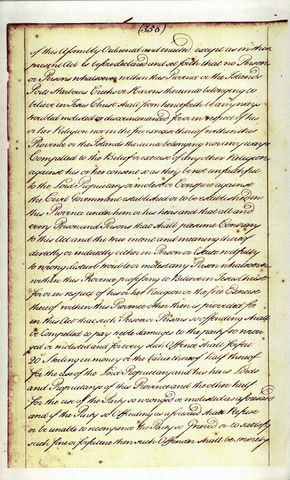 (356)
of this Assembly Ordained and enacted except as in this
present Act is before declared and sett forth that no Person
or Persons whatsoever within this Province or the Islands
Ports Harbours Creeks or Havens thereunto belonging
believe in Jesus Christ shall from henceforth be any ways
troubled molested or discountenanced for or in respect of his
or her Religion nor in the free exercise thereof within this
Province or the Islands thereunto belonging nor any way
Compelled to the Belief or exercise of any other Religion
against his or her consent so as they be not unfaithful
to the Lord Proprietary or molest or Conspire against
the Civil Government established or to be established in
this Province under him or his heirs and that all and
every Person and Persons that shall presume Contrary
to this Act and the true intent and meaning thereof
directly or indirectly either in Person or Estate wilfully
to wrong disturb trouble or molest any Person whatsoever
within this Province professing to believe in Jesus Christ
for or in respect of his or her Religion or the free Exercise
thereof within this Province other than is provided for
in this Act that such Person or Persons so offending shall
be Compelled to pay treble damages to the party so wron
ged or molested and for every such Offence shall forfeit
20s Sterling in money or the Value thereof half thereof
for the use of the Lord Proprietary and his heirs Lords
and Proprietarys of this Province and the other half
for the use of the Party so wronged or molested as aforesaid
and if the Party so Offending as aforesaid shall Refuse
or be unable to recompense the Party so or to satisfy
such fine or forfeiture then such Offender shall be severely